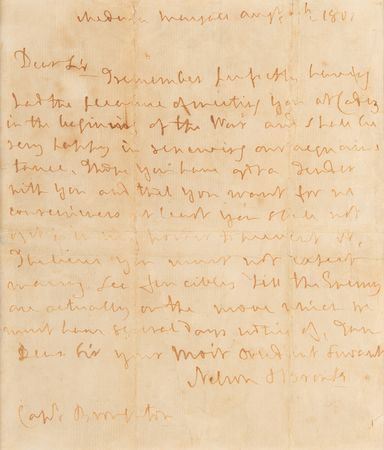 Medusa Margate augst 1801
Dear Sir
I remember perfectly having
had the pleasure of meeting you at Cadiz
in the beginning of the War and shall be
very happy in renewing our acquain
tance, I hope you have got a tender
with you and that you want for no
conveniences at least you shall not
if it is in my power to prevent it,
I believe you must not expect
many Sea fencibles 'till the Enemy
are actually on the move which we
must have several days notice of, I am
Dear Sir your most obedient Servant
Nelson & Bronte
Capt. Broughton